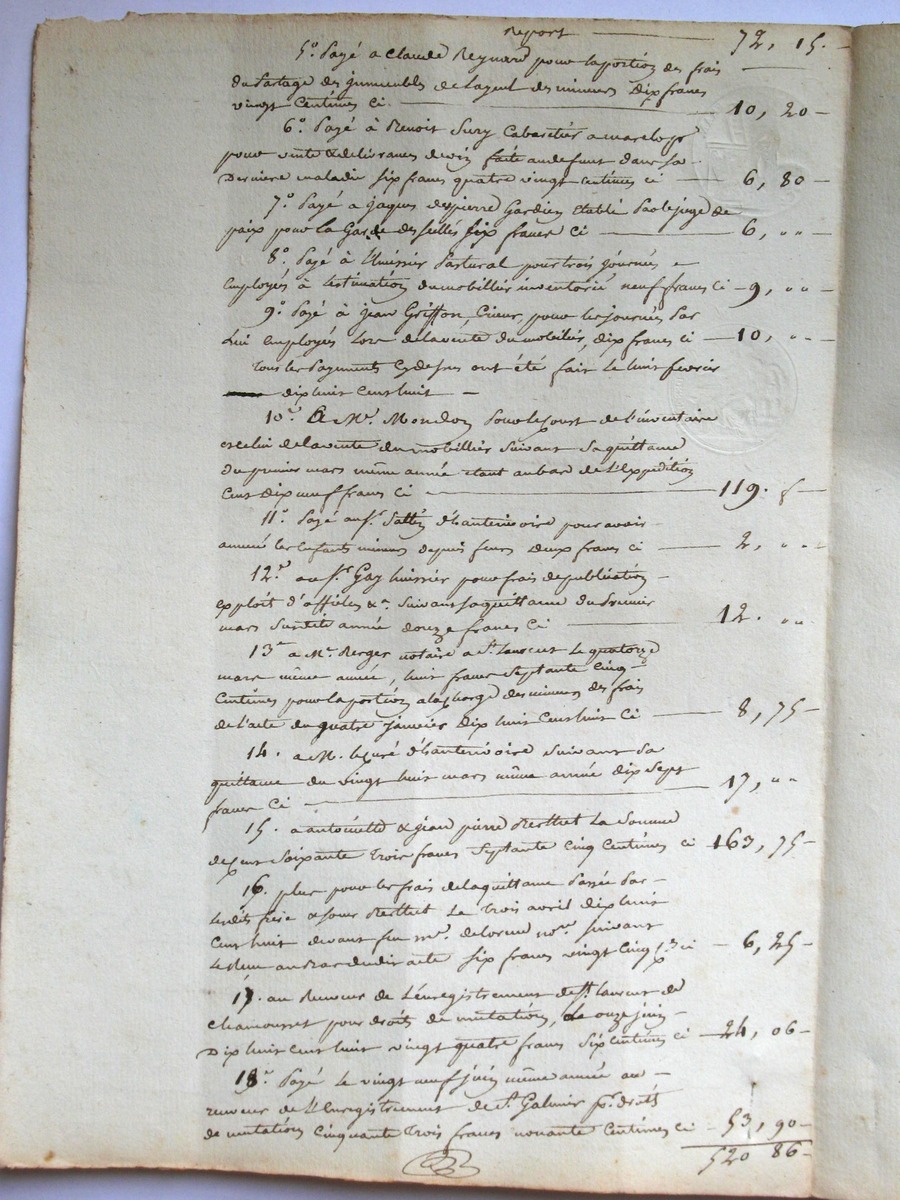 Report 72, 15.
5.° Payé a Claude Reynard pour la portion des frais
du Partage des immeubles de layeul des mineurs Dix francs
vingt Centimes Ci. 10, 20
6.° Payé à Benoit Suzy Cabaretier a
pour vente & delivrances de vin faite au defunt dans sa
Derniere maladie six francs quatre vingt centimes ci 6, 80
7.° Payé a jaques depierre Gardien etabli Par le juge de
paix pour la Garde des scellés six francs Ci 6, " "
8.° Payé à l'huissier Pastural pour trois journées
Employés à lestimation du mobillier inventorié neuf francs Ci 9, " "
9.° Payé à jean Griffon, Crieur, pour les journées Par
Lui employés Lors de la vente du mobilier, dix francs ci 10, " "
Tous les Payments cy dessus ont été fait le huit fevrier
dix huit Cent huit
10.° A Mr. Mondon Pour le Cout de l'inventaire
et celui de la vente du mobillier Suivant Sa quittance
du premier mars même année etant au bas de l'Expedition
Cent Dix neuf francs Ci 119. f
11.° Payé au Sr. d'hauterivoire pour avoir
amené les enfants mineurs depuis feurs deux francs ci 2, " "
12.° au Sr. Gay huissier pour frais de publication
exploit d'affiches &a. Suivant sa quittance du Premier
mars Susdite année douze francs Ci 12. " "
13.° a Mr. Berger notaire a St. Laurent Le quatorze
mars même année, huit francs Septante Cinq
Centimes pour la portion a la charge des mineurs des frais
de l'acte du quatre janvier Dix huit Cent huit Ci 8, 75
14. a M. le Curé d'hauterivoire Suivant Sa
quittance du vingt huit mars même année dix Sept
francs Ci 17, " "
15. a antoinette & jean pierre Berthet La Somme
de Cent Soixante Trois francs Septante Cinq Centimes Ci 163, 75
16. plus pour les frais de la quittance Passée Par
lesdits frere & soeur Berthet Le Trois avril dix huit
Cent huit devant feu me. delorme nore. suivant
Le Recu au Bas dudit acte Six francs vingt Cinq ces ci 6, 25
17. au Receveur de L'Enregistrement de St. Laurent de
Chamousset pour droits de mutation, le onze juin
Dix huit Cent huit vingt quatre francs Six Centimes Ci 24, 06
18.° Payé Le vingt neuf juin même année au
receveur de l'Enregistrement de St. Galmier pr. droits
de mutation Cinquante Trois francs nonante Centimes Ci 53, 90
520 86